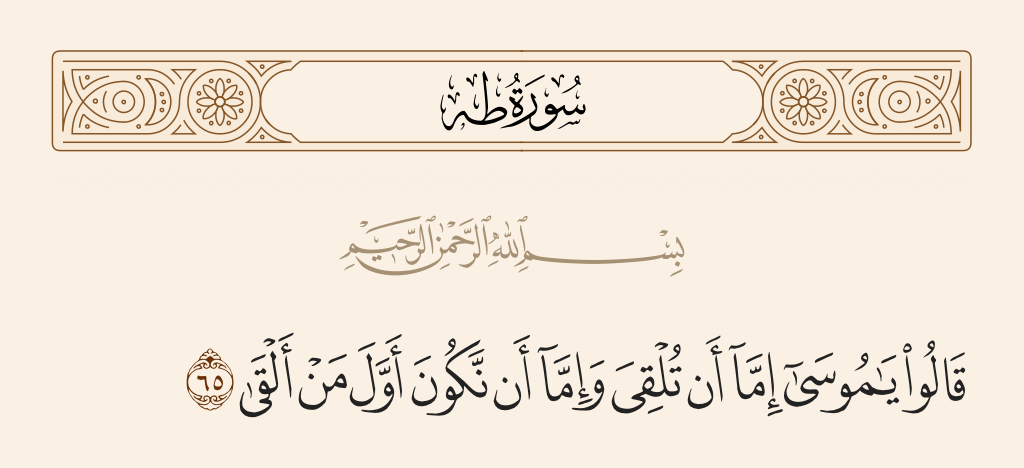 سُورَةُ طه
بِسْمِ ٱللَّهِ ٱلرَّحْمَٰنِ ٱلرَّحِيمِ
قَالُوا۟ يَـٰمُوسَىٰٓ إِمَّآ أَن تُلْقِىَ وَإِمَّآ أَن نَّكُونَ أَوَّلَ مَنْ أَلْقَىٰ ٦٥